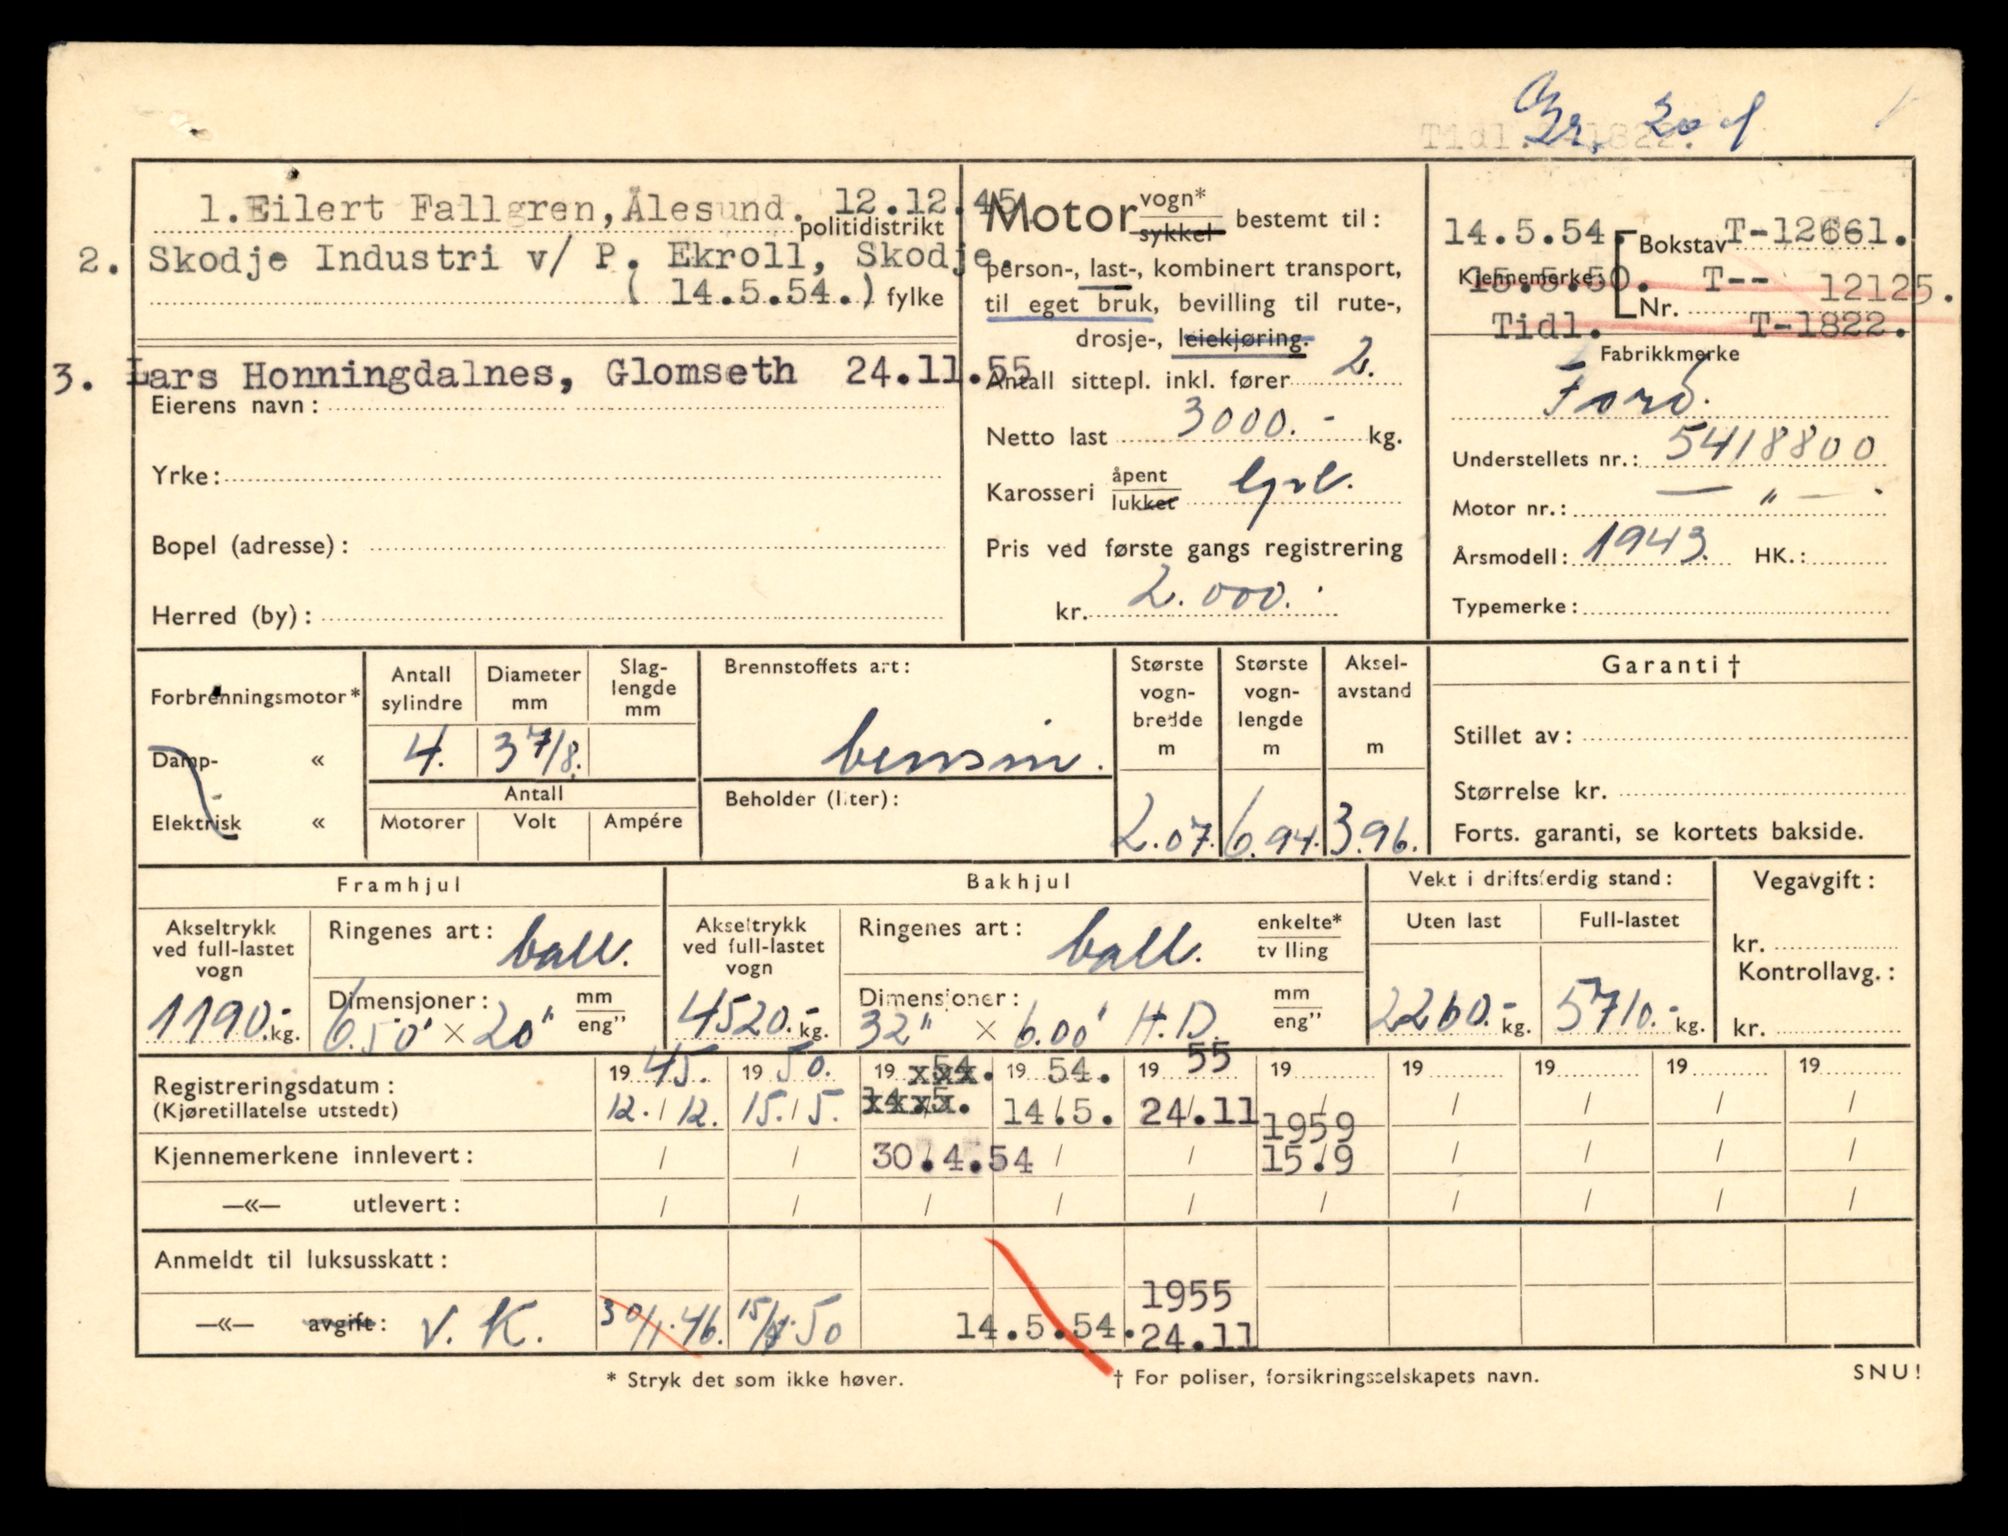 Tidl. 1822.
Gr. 20
1. Eilert Fallgren, Ålesund. 12.12.45.
politidistrikt
2. Skodje Industri v/ P. Ekroll, Skodje.
( 14.5.54.) fylke
3. Lars Honningdalnes, Glomseth 24.11.55
Eierens navn:
Yrke:
Bopel (adresse):
Herred (by):
Motor vogn* sykkel bestemt til:
person-, last-, kombinert transport,
til eget bruk, bevilling til rute-,
drosje-, leiekjøring.
Antall sittepl. inkl. fører 2.
Netto last 3000.- kg.
Karosseri åpent lukket
Pris ved første gangs registrering
kr. 2.000.-
14.5.54. Bokstav T-12661.
Kjennemerke: 15.5.50. T-- 12125.
Nr.
Tidl. T-1822.
Fabrikkmerke
Ford.
Understellets nr.: 5418800
Motor nr.: — " —
Årsmodell: 1943. HK.:
Typemerke:
Forbrenningsmotor*
Damp- «
Elektrisk «
Antall sylindre
4.
Diameter mm
3 7/8.
Slag-lengde mm
Antall
Motorer Volt Ampére
Brennstoffets art:
bensin.
Beholder (liter):
Største vogn-bredde m
2.07.
Største vogn-lengde m
6.94.
Aksel-avstand m
3.96.
Garanti †
Stillet av:
Størrelse kr.
Forts. garanti, se kortets bakside.
Framhjul
Akseltrykk ved full-lastet vogn
1190.- kg.
Ringenes art: ball.
Dimensjoner: mm eng"
6.50" × 20"
Bakhjul
Akseltrykk ved full-lastet vogn
4520.- kg.
Ringenes art: ball. enkelte* tvilling
Dimensjoner: mm eng"
32" × 6.00" H.D.
Vekt i driftsferdig stand:
Uten last
2260.- kg.
Full-lastet
5710.- kg.
Vegavgift:
kr.
Kontrollavg.:
kr.
Registreringsdatum: 19 45. 19 50. 19 54. 19 54. 19 55 19 19 19 19 19
(Kjøretillatelse utstedt) 12./12. 15./5. 14.5. 14.5. 24.11 / / / / /
1959
Kjennemerkene innlevert: / / 30.4.54 / / 15.9 / / / /
—«— utlevert: / / / / / / / / / /
Anmeldt til luksusskatt:
1955
—«— avgift: V. K. 30/1.46. 15/4.50 14.5.54. 24.11
* Stryk det som ikke høver.
† For poliser, forsikringsselskapets navn.
SNU!